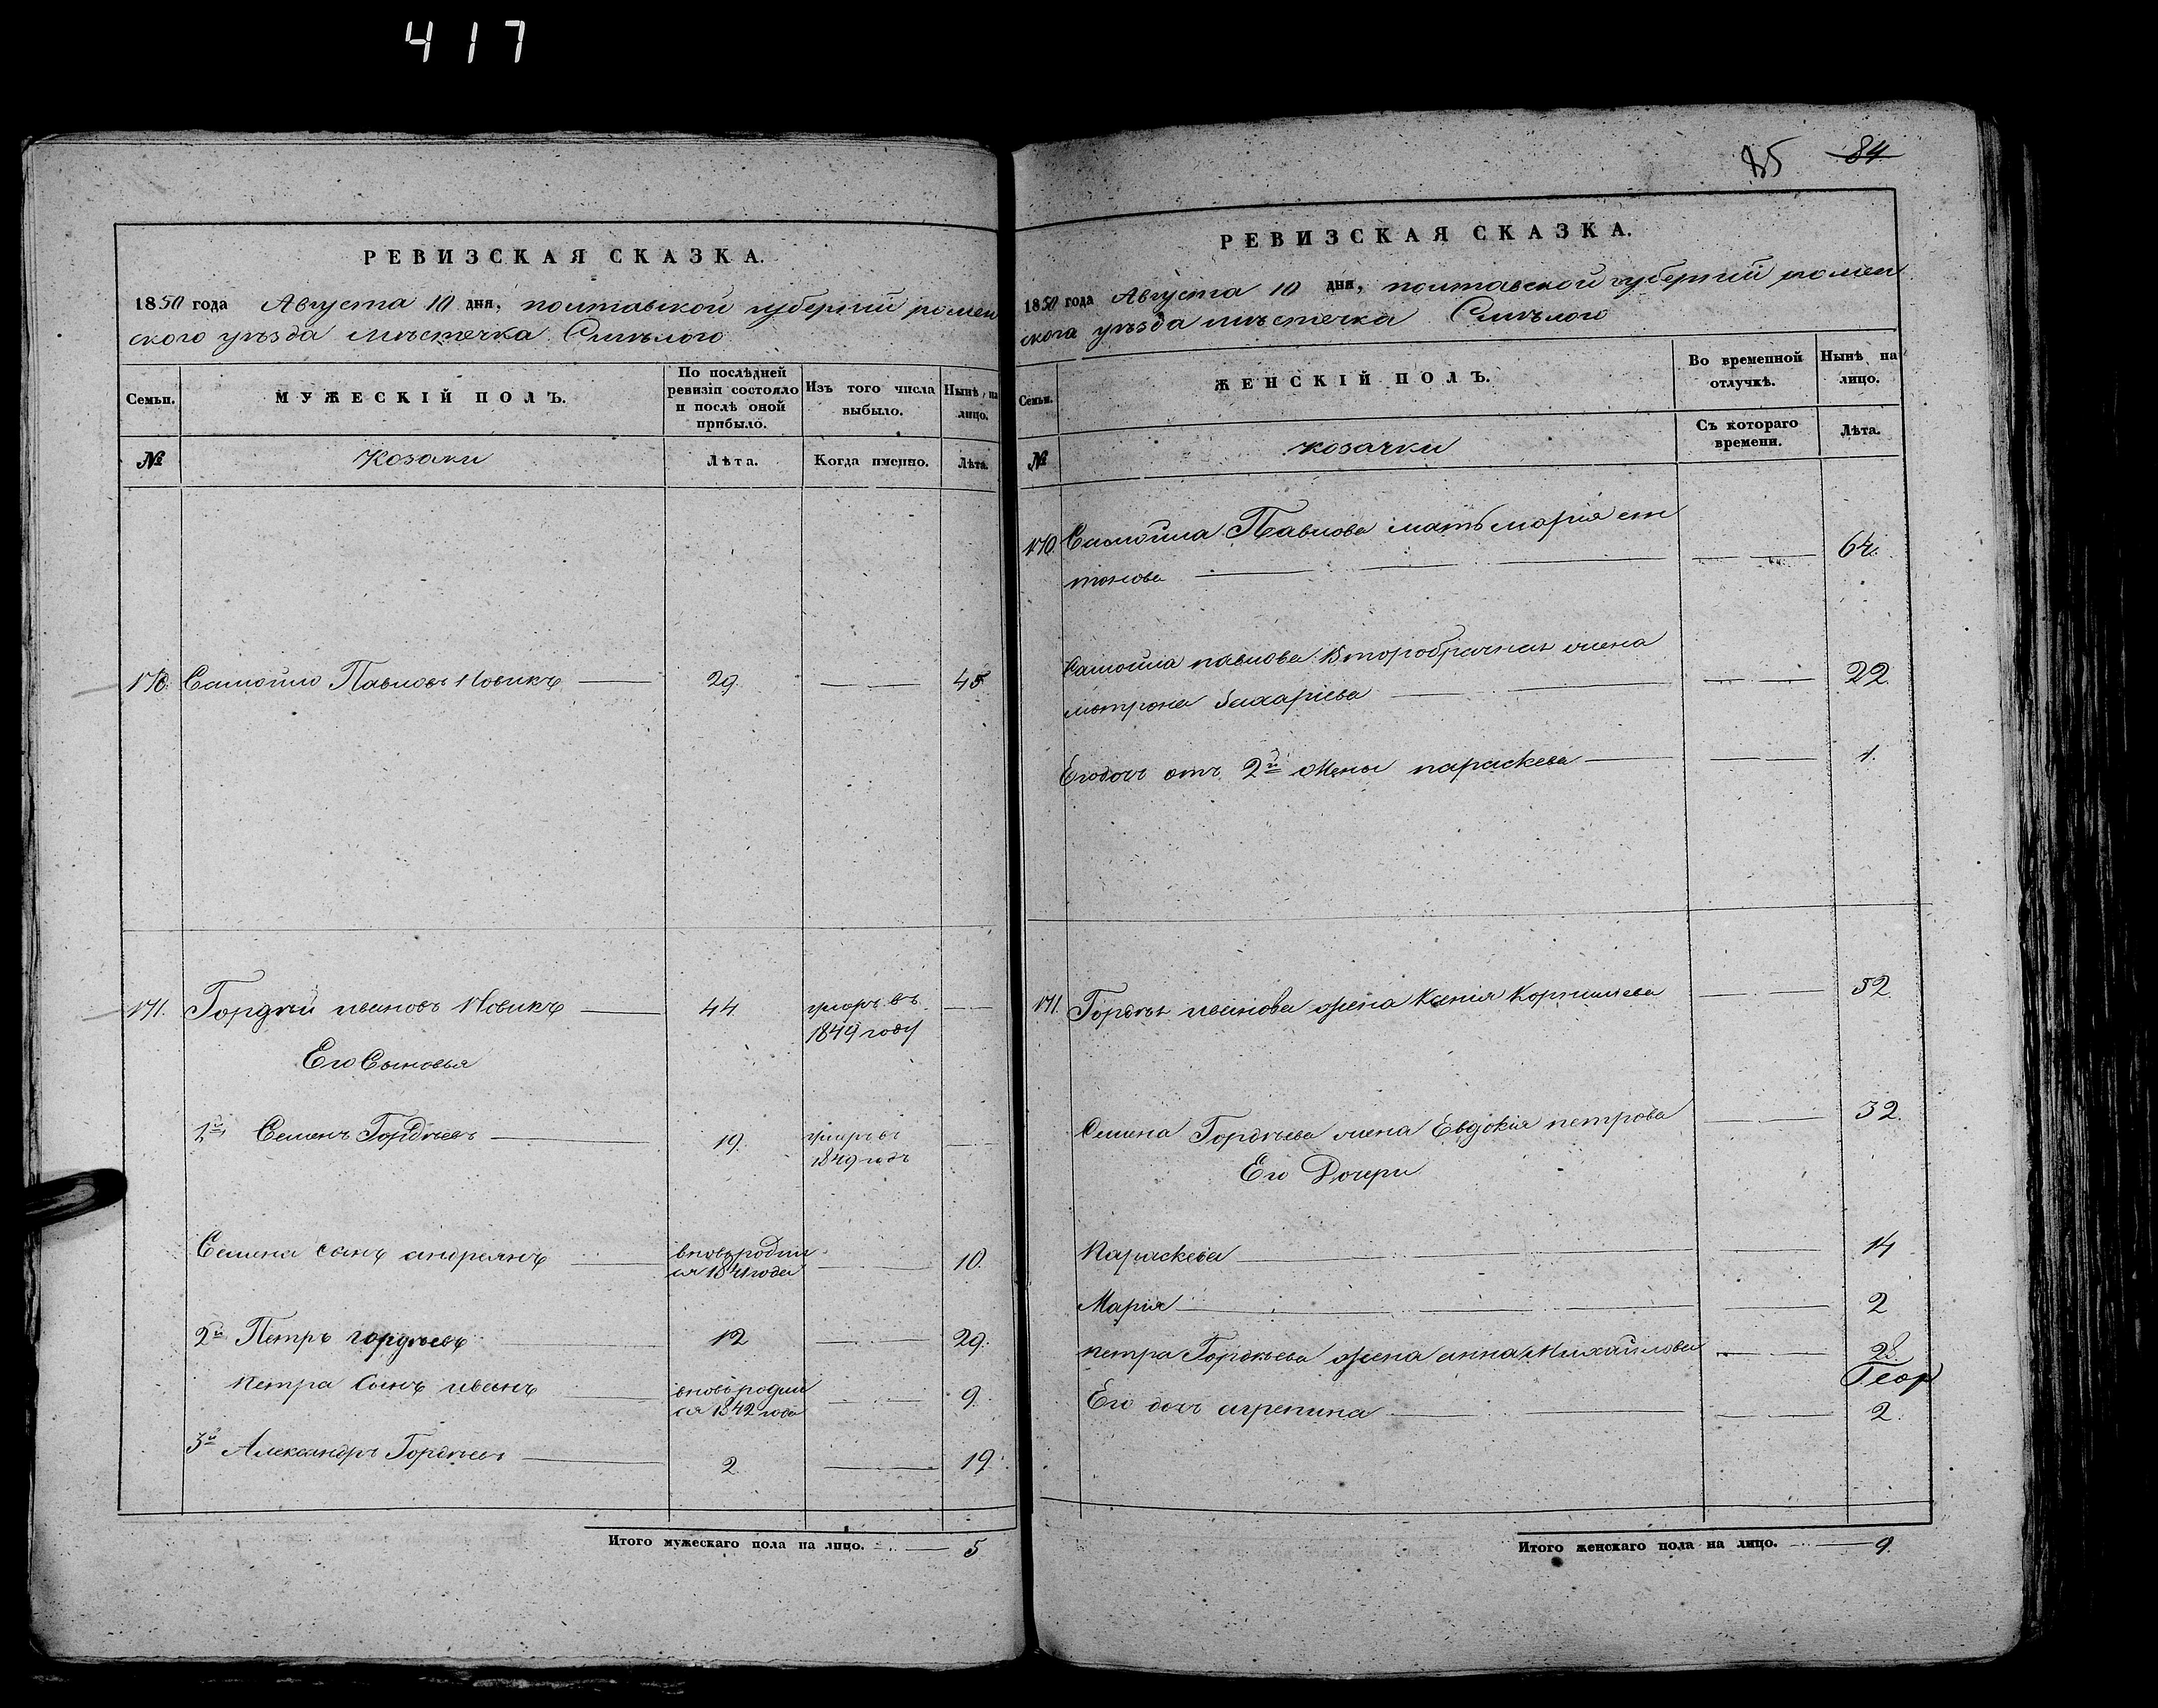 417
РЕВИЗСКАЯ СКАЗКА.
1850 года Августа 10 дня, полтавской губернии ромен
ского уѣзда мѣстечка Смѣлого
Семьи.
МУЖЕСКІЙ ПОЛЪ.
По послѣдней ревизіи состояло и послѣ оной прибыло.
Изъ того числа выбыло.
Нынѣ на лицо.
№
Козаки
Лѣта.
Когда именно.
Лѣта.
170. Самойло Павловъ Новикъ 29. 45
171. Гордѣй ивановъ Новикъ 44 умеръ въ
1849 году
Его Сыновья
1й Семенъ Гордѣевъ 19. умеръ въ
1849 годъ
Семена сынъ андреянъ вновь родил
ся 1841 года 10.
2й Петръ гордѣевъ 12 29.
Петра Сынъ иванъ вновь родил
ся 1842 года 9.
3й Александръ Гордѣевъ 2. 19.
Итого мужескаго пола на лицо. 5
85 84
РЕВИЗСКАЯ СКАЗКА.
1850 года Августа 10 дня, полтавской губернии ромен
ского уѣзда мѣстечка Смѣлого
Семьи.
ЖЕНСКІЙ ПОЛЪ.
Во временной отлучкѣ.
Нынѣ на лицо.
№
козачки
Съ котораго времени.
Лѣта.
170. Самойла Павлова мать мария ан
тонова 64.
Самойла павлова Второбрачная жена
мотрона Захаріева 22.
Его дочь отъ 2й жены параскева 1.
171. Гордѣя иванова жена Ксенія Корнилиева 52.
Семена Гордѣева жена Евдокия петрова 32.
Его Дочери
Параскева 14
Мария 2
петра Гордѣева жена анна Михайлова 28.
Его дочь агрепина 2.
Итого женскаго пола на лицо. 9.